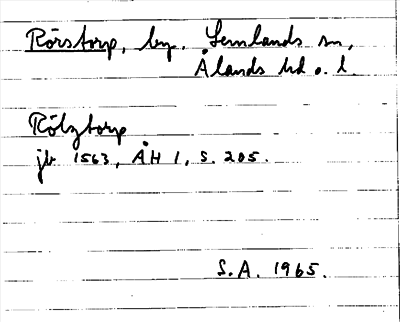 Rörstorp, by. Lemlands sn,
Ålands hd o. l.
Rölztorp
jb 1563, ÅH 1, s. 205.
S.A. 1965.